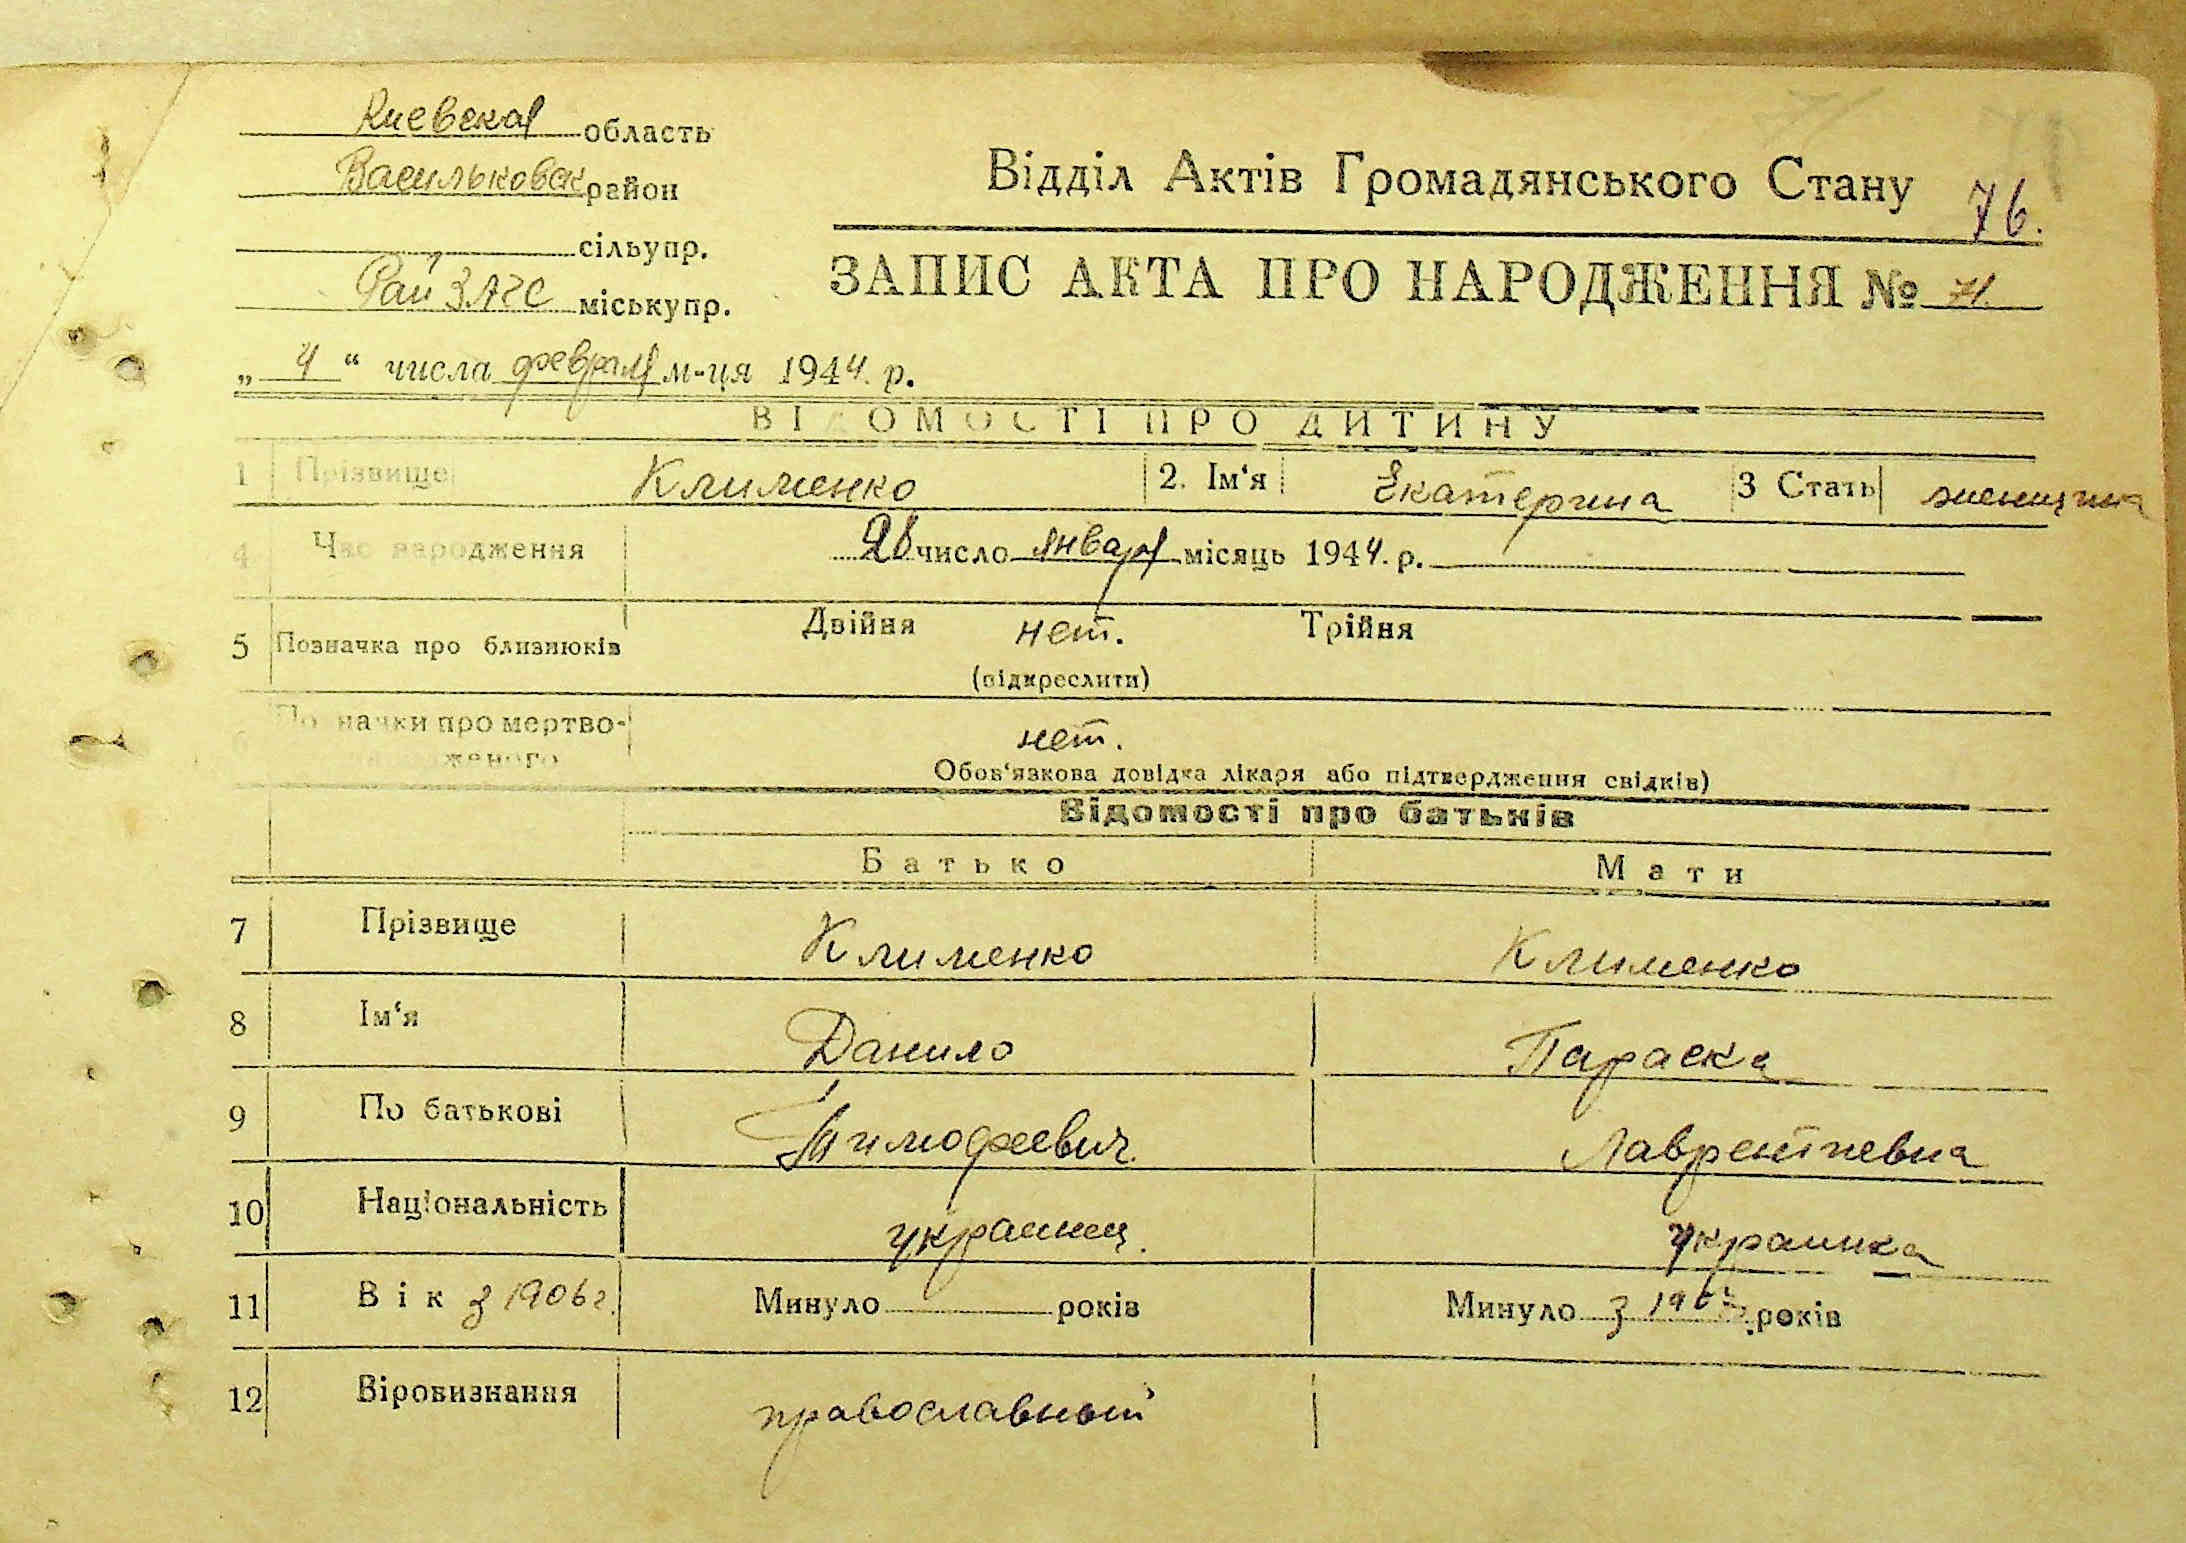 Киевская область
Васильковск район
сільупр.
Рай ЗАГС міськупр.
Відділ Актів Громадянського Стану 76.
ЗАПИС АКТА ПРО НАРОДЖЕННЯ № 71.
„ 4 “ числа февраля м-ця 1944. р.
ВІДОМОСТІ ПРО ДИТИНУ
1 Прізвище Клименко 2. Ім‘я Екатерина 3 Стать женщина
4 Час народження 28 число января місяць 1944. р.
5 Позначка про близнюків Двійня нет. Трійня
(підкреслити)
6 Позначки про мертво- нет.
Обов‘язкова довідка лікаря або підтвердження свідків)
Відомости про батьків
Батько Мати
7 Прізвище Клименко Клименко
8 Ім‘я Данило Параска
9 По батькові Тимофеевич. Лаврентиевна
10 Національність украинец. украинка
11 Вік з 1906 г. Минуло років Минуло з років
12 Віровизнання православный